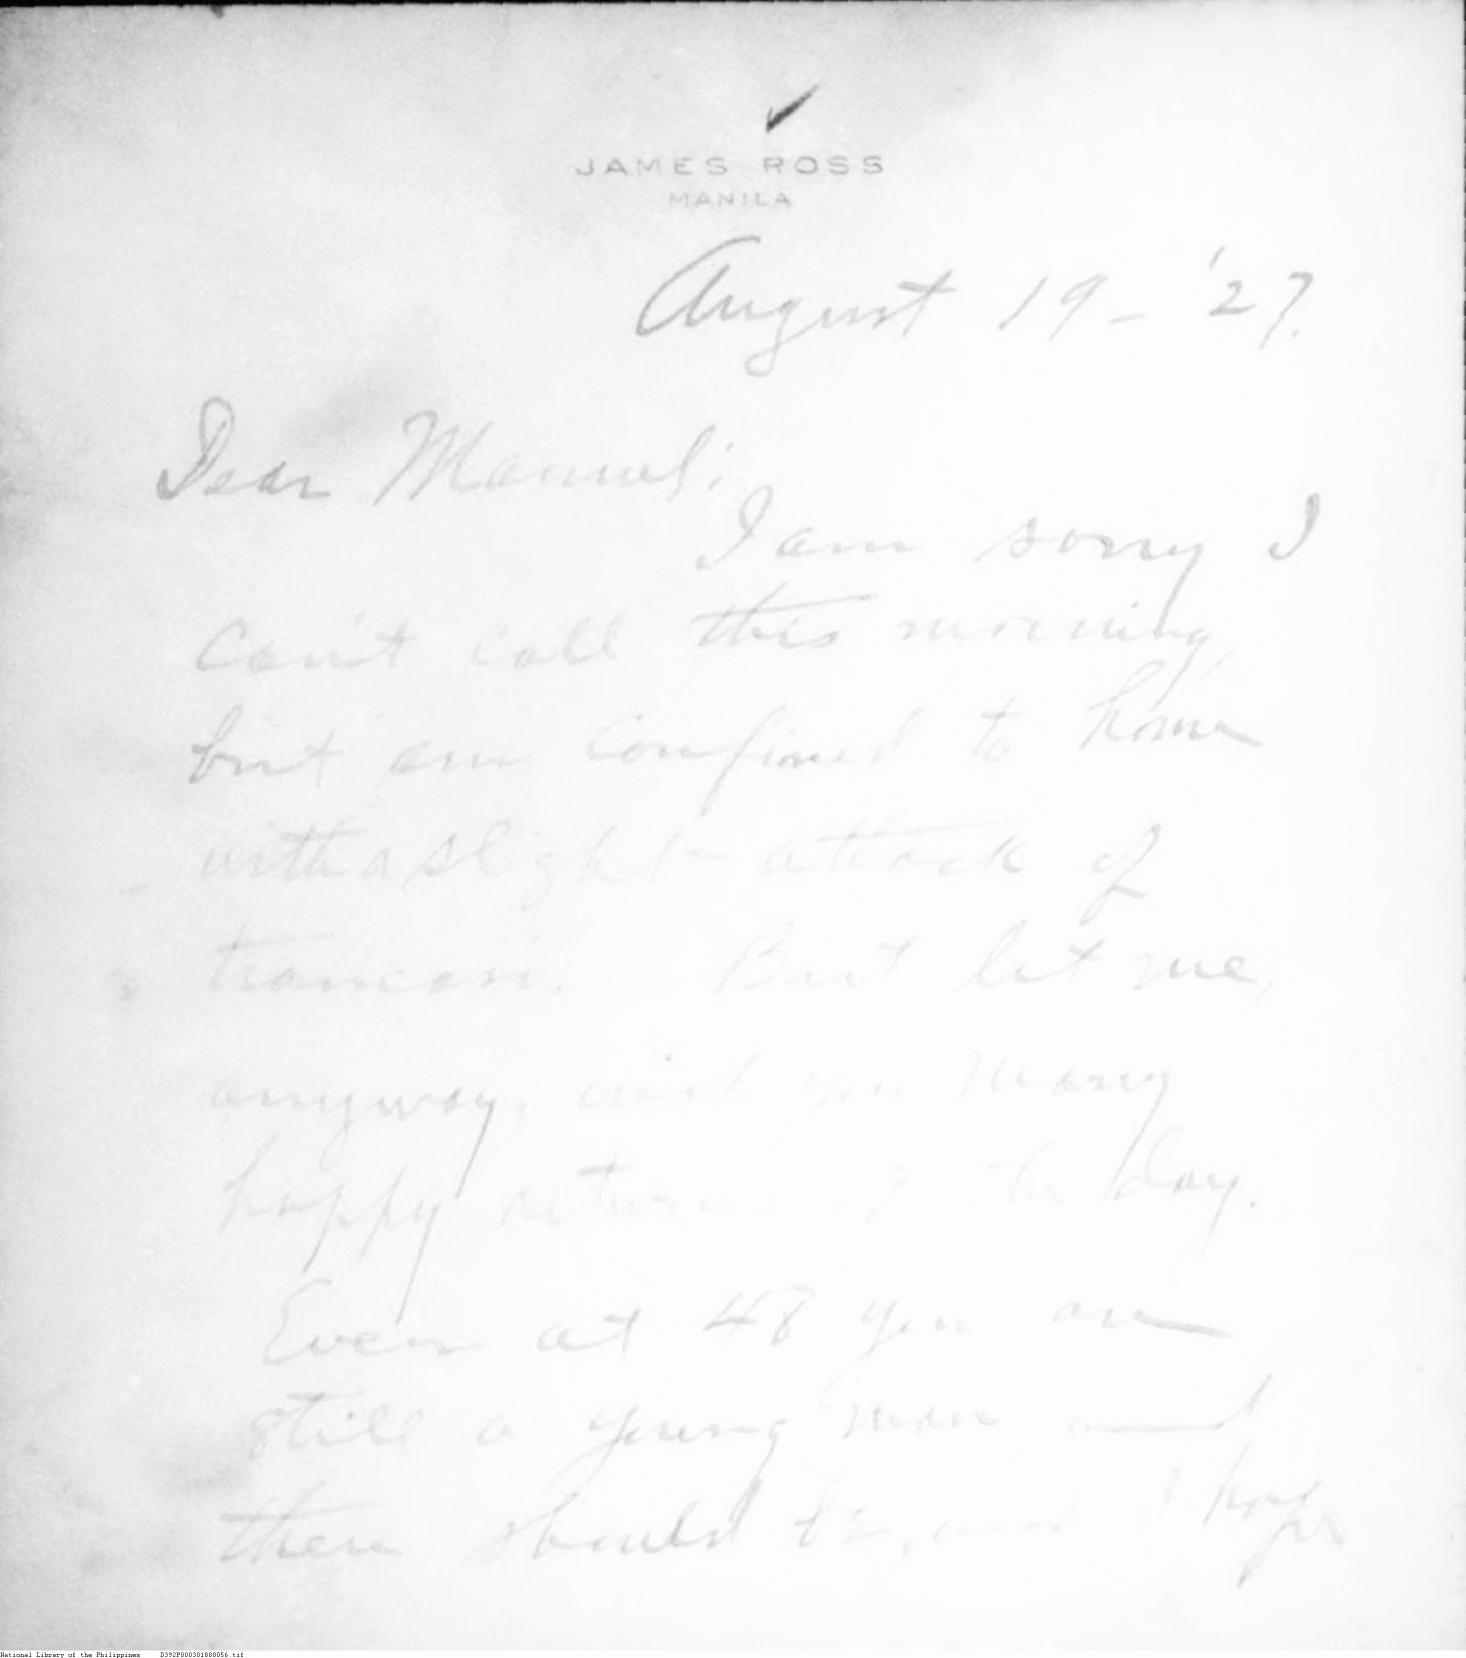 JAMES ROSS
MANILA
August 19 - '27.
Dear Manuel:
I am sorry I
can't call this morning,
but am confined to home
with a slight attack of
But let me,
anyway, wish you many
happy returns of the day.
Even at 48 you are
still a young man and
there should be, and I hope
National Library of the Philippines D392P000301880056.tif